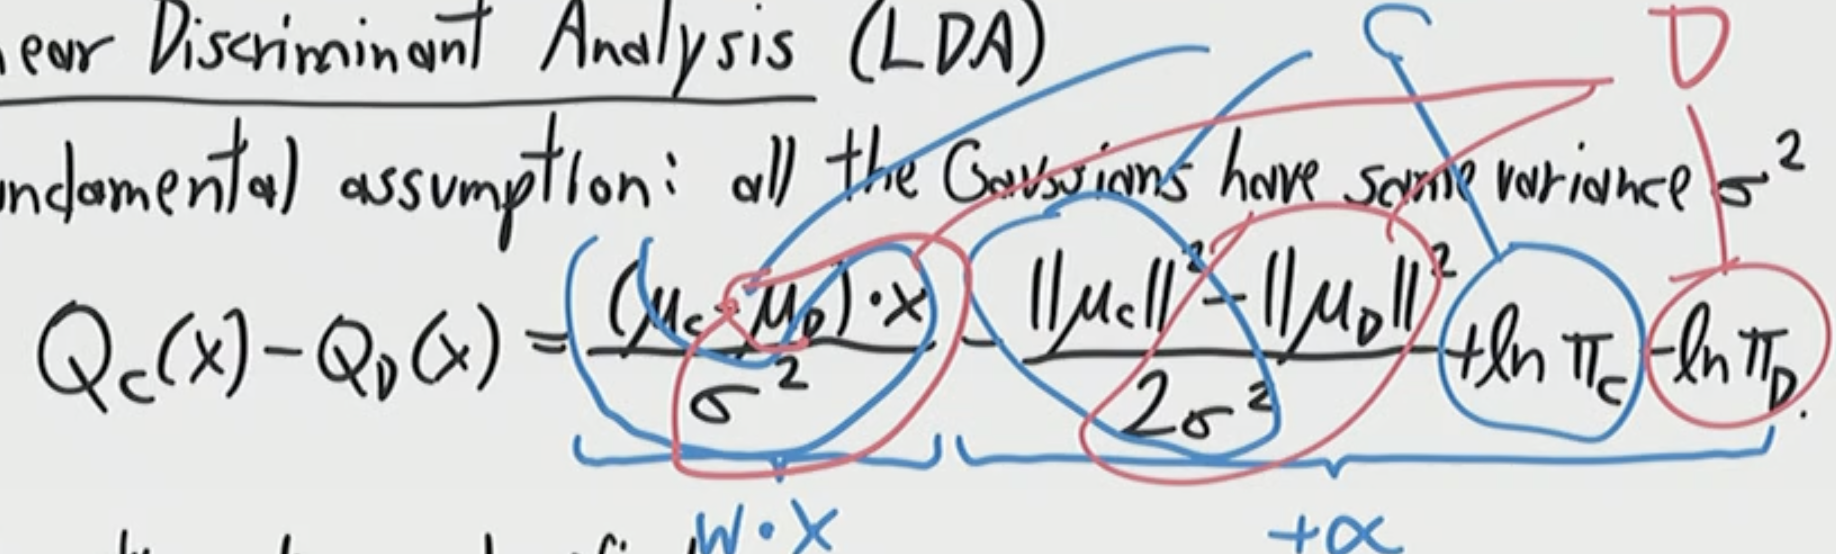 ear Discriminant Analysis (LDA)
C D
ndamental assumption: all the Gaussians have same variance σ²
Q_C(x) - Q_D(x) = (μ_C - μ_D)·x / σ² - ||μ_C||² - ||μ_D||² / 2σ² + ln π_C - ln π_D.
w·x +α